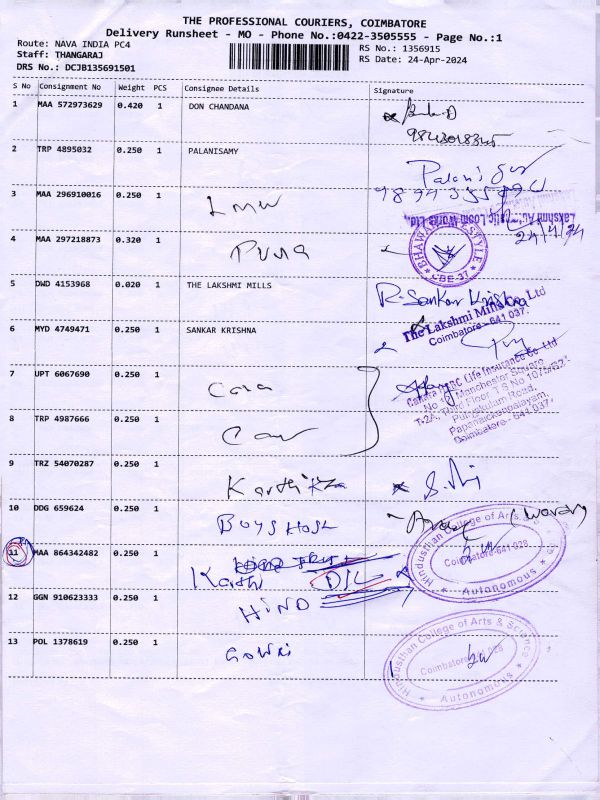 THE PROFESSIONAL COURIERS, COIMBATORE
Delivery Runsheet - MO - Phone No.:0422-3505555 - Page No.:1
Route: NAVA INDIA PC4
RS No.: 1356915
Staff: THANGARAJ
RS Date: 24-Apr-2024
DRS No.: DCJB135691501
S No Consignment No Weight PCS Consignee Details Signature
1 MAA 572973629 0.420 1 DON CHANDANA
2 TRP 4895032 0.250 1 PALANISAMY
3 MAA 296910016 0.250 1 LMW
Lakshmi Works Ltd.,
24/4/24
4 MAA 297218873 0.320 1 PUMA
BHAWA LIFESTYLE
CBE-37
5 DWD 4153968 0.020 1 THE LAKSHMI MILLS R. Sankar Krishna
The Lakshmi Mills Ltd
Coimbatore - 641 037.
6 MYD 4749471 0.250 1 SANKAR KRISHNA
7 UPT 6067690 0.250 1 Cana
Canara HSBC Life Insurance Co Ltd
Coimbatore - 641 037.
8 TRP 4987666 0.250 1
9 TRZ 54070287 0.250 1 Karthika
10 DDG 659624 0.250 1 BOYS HOSL
Hindusthan College of Arts &
Coimbatore-641 028
Autonomous
11 MAA 864342482 0.250 1 Karth
12 GGN 910623333 0.250 1 HIND
13 POL 1378619 0.250 1 GOWRI
Hindusthan College of Arts & Science
Coimbatore-641 028
Autonomous